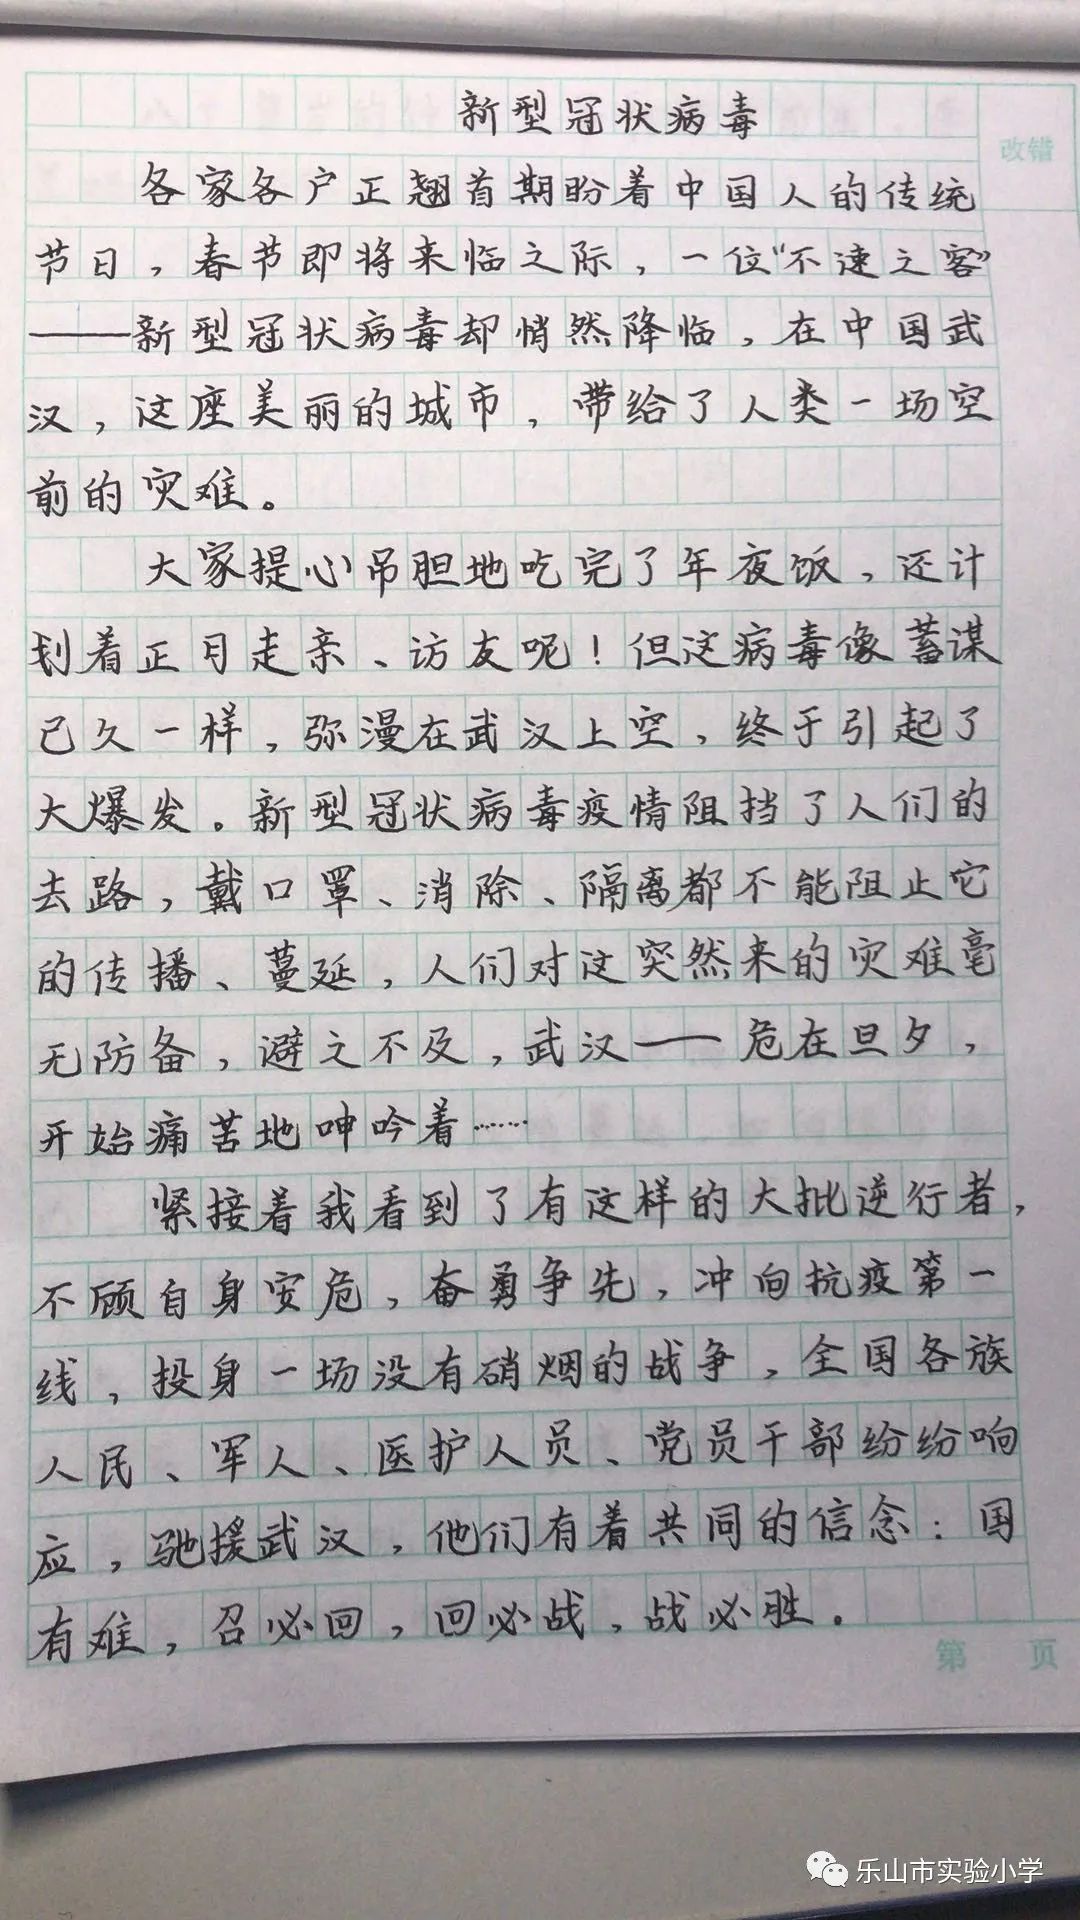 新型冠状病毒
改错
各家各户正翘首期盼着中国人的传统
节日，春节即将来临之际，一位“不速之客”
——新型冠状病毒却悄然降临，在中国武
汉，这座美丽的城市，带给了人类一场空
前的灾难。
大家提心吊胆地吃完了年夜饭，还计
划着正月走亲、访友呢！但这病毒像蓄谋
已久一样，弥漫在武汉上空，终于引起了
大爆发。新型冠状病毒疫情阻挡了人们的
去路，戴口罩、消除、隔离都不能阻止它
的传播、蔓延，人们对这突然来的灾难毫
无防备，避之不及，武汉——危在旦夕，
开始痛苦地呻吟着……
紧接着我看到了有这样的大批逆行者，
不顾自身安危，奋勇争先，冲向抗疫第一
线，投身一场没有硝烟的战争，全国各族
人民、军人、医护人员、党员干部纷纷响
应，驰援武汉，他们有着共同的信念：国
有难，召必回，回必战，战必胜。
第 页
乐山市实验小学